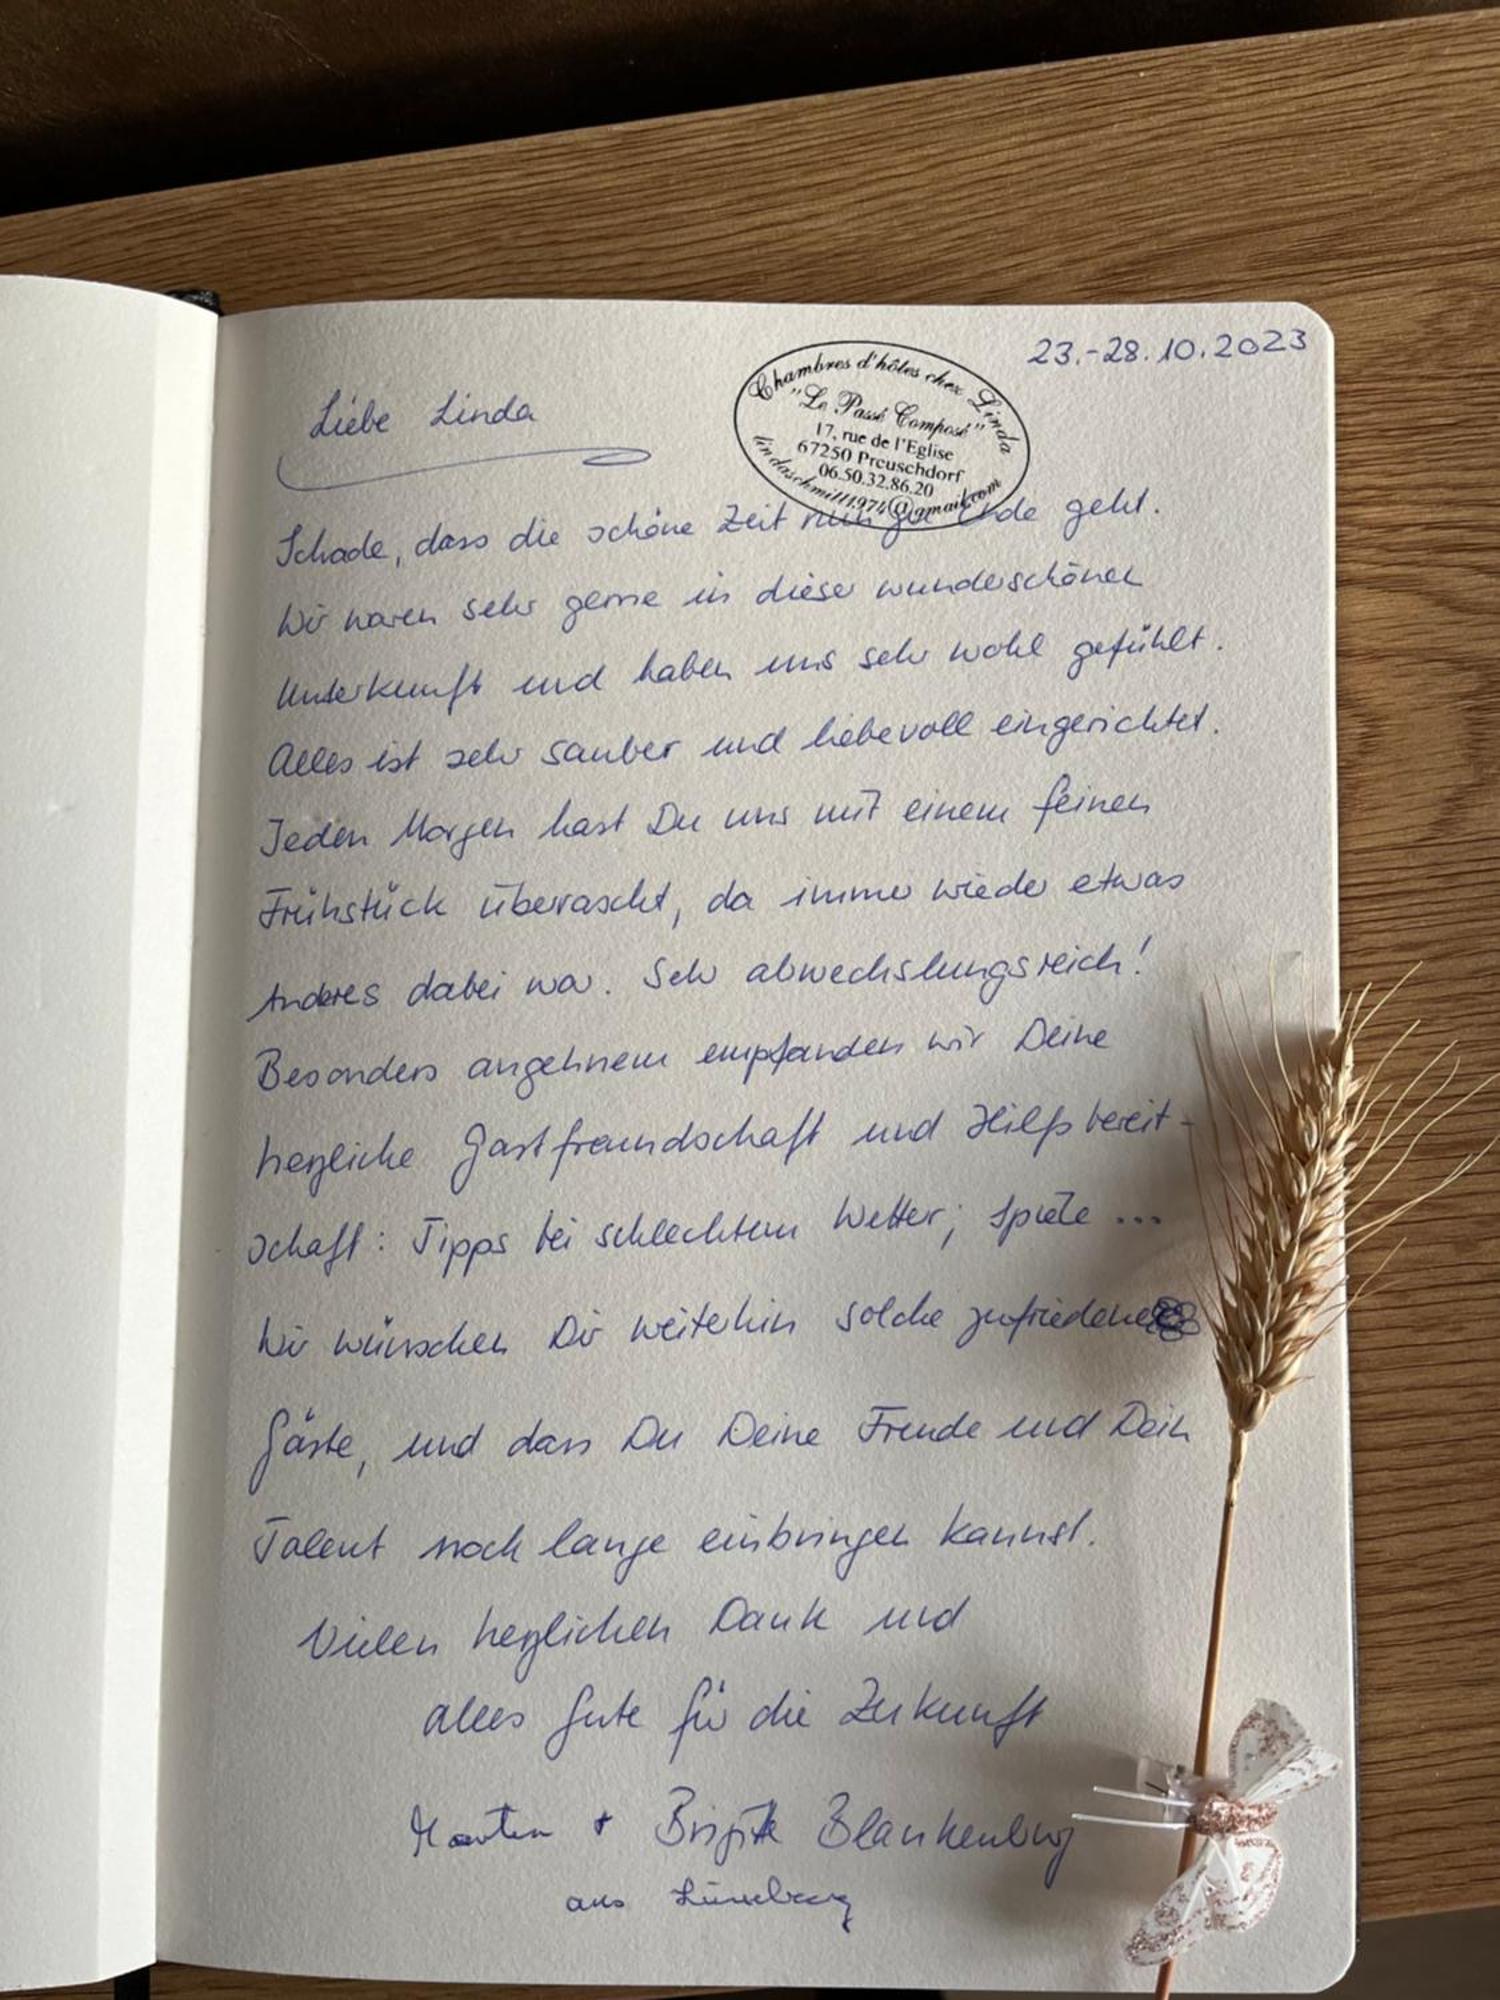 23.-28.10.2023
Chambres d'hôtes chez Linda
"Le Passé Composé"
17, rue de l'Eglise
67250 Preuschdorf
06.50.32.86.20
lindaschmitt1974@gmail.com
Liebe Linda
Schade, dass die schöne Zeit nun zu Ende geht.
Wir waren sehr gerne in dieser wunderschönen
Unterkunft und haben uns sehr wohl gefühlt.
Alles ist sehr sauber und liebevoll eingerichtet.
Jeden Morgen hast Du uns mit einem feinen
Frühstück überrascht, da immer wieder etwas
Anderes dabei war. Sehr abwechslungsreich!
Besonders angehnem empfanden wir Deine
herzliche Gastfreundschaft und Hilfsbereit-
schaft: Tipps bei schlechtem Wetter; Spiele ...
Wir wünschen Dir weiterhin solche zufriedene
Gäste, und dass Du Deine Freude und Dein
Talent noch lange einbringen kannst.
Vielen herzlichen Dank und
alles Gute für die Zukunft
+ Brigitte Blankenburg
aus Lüneburg